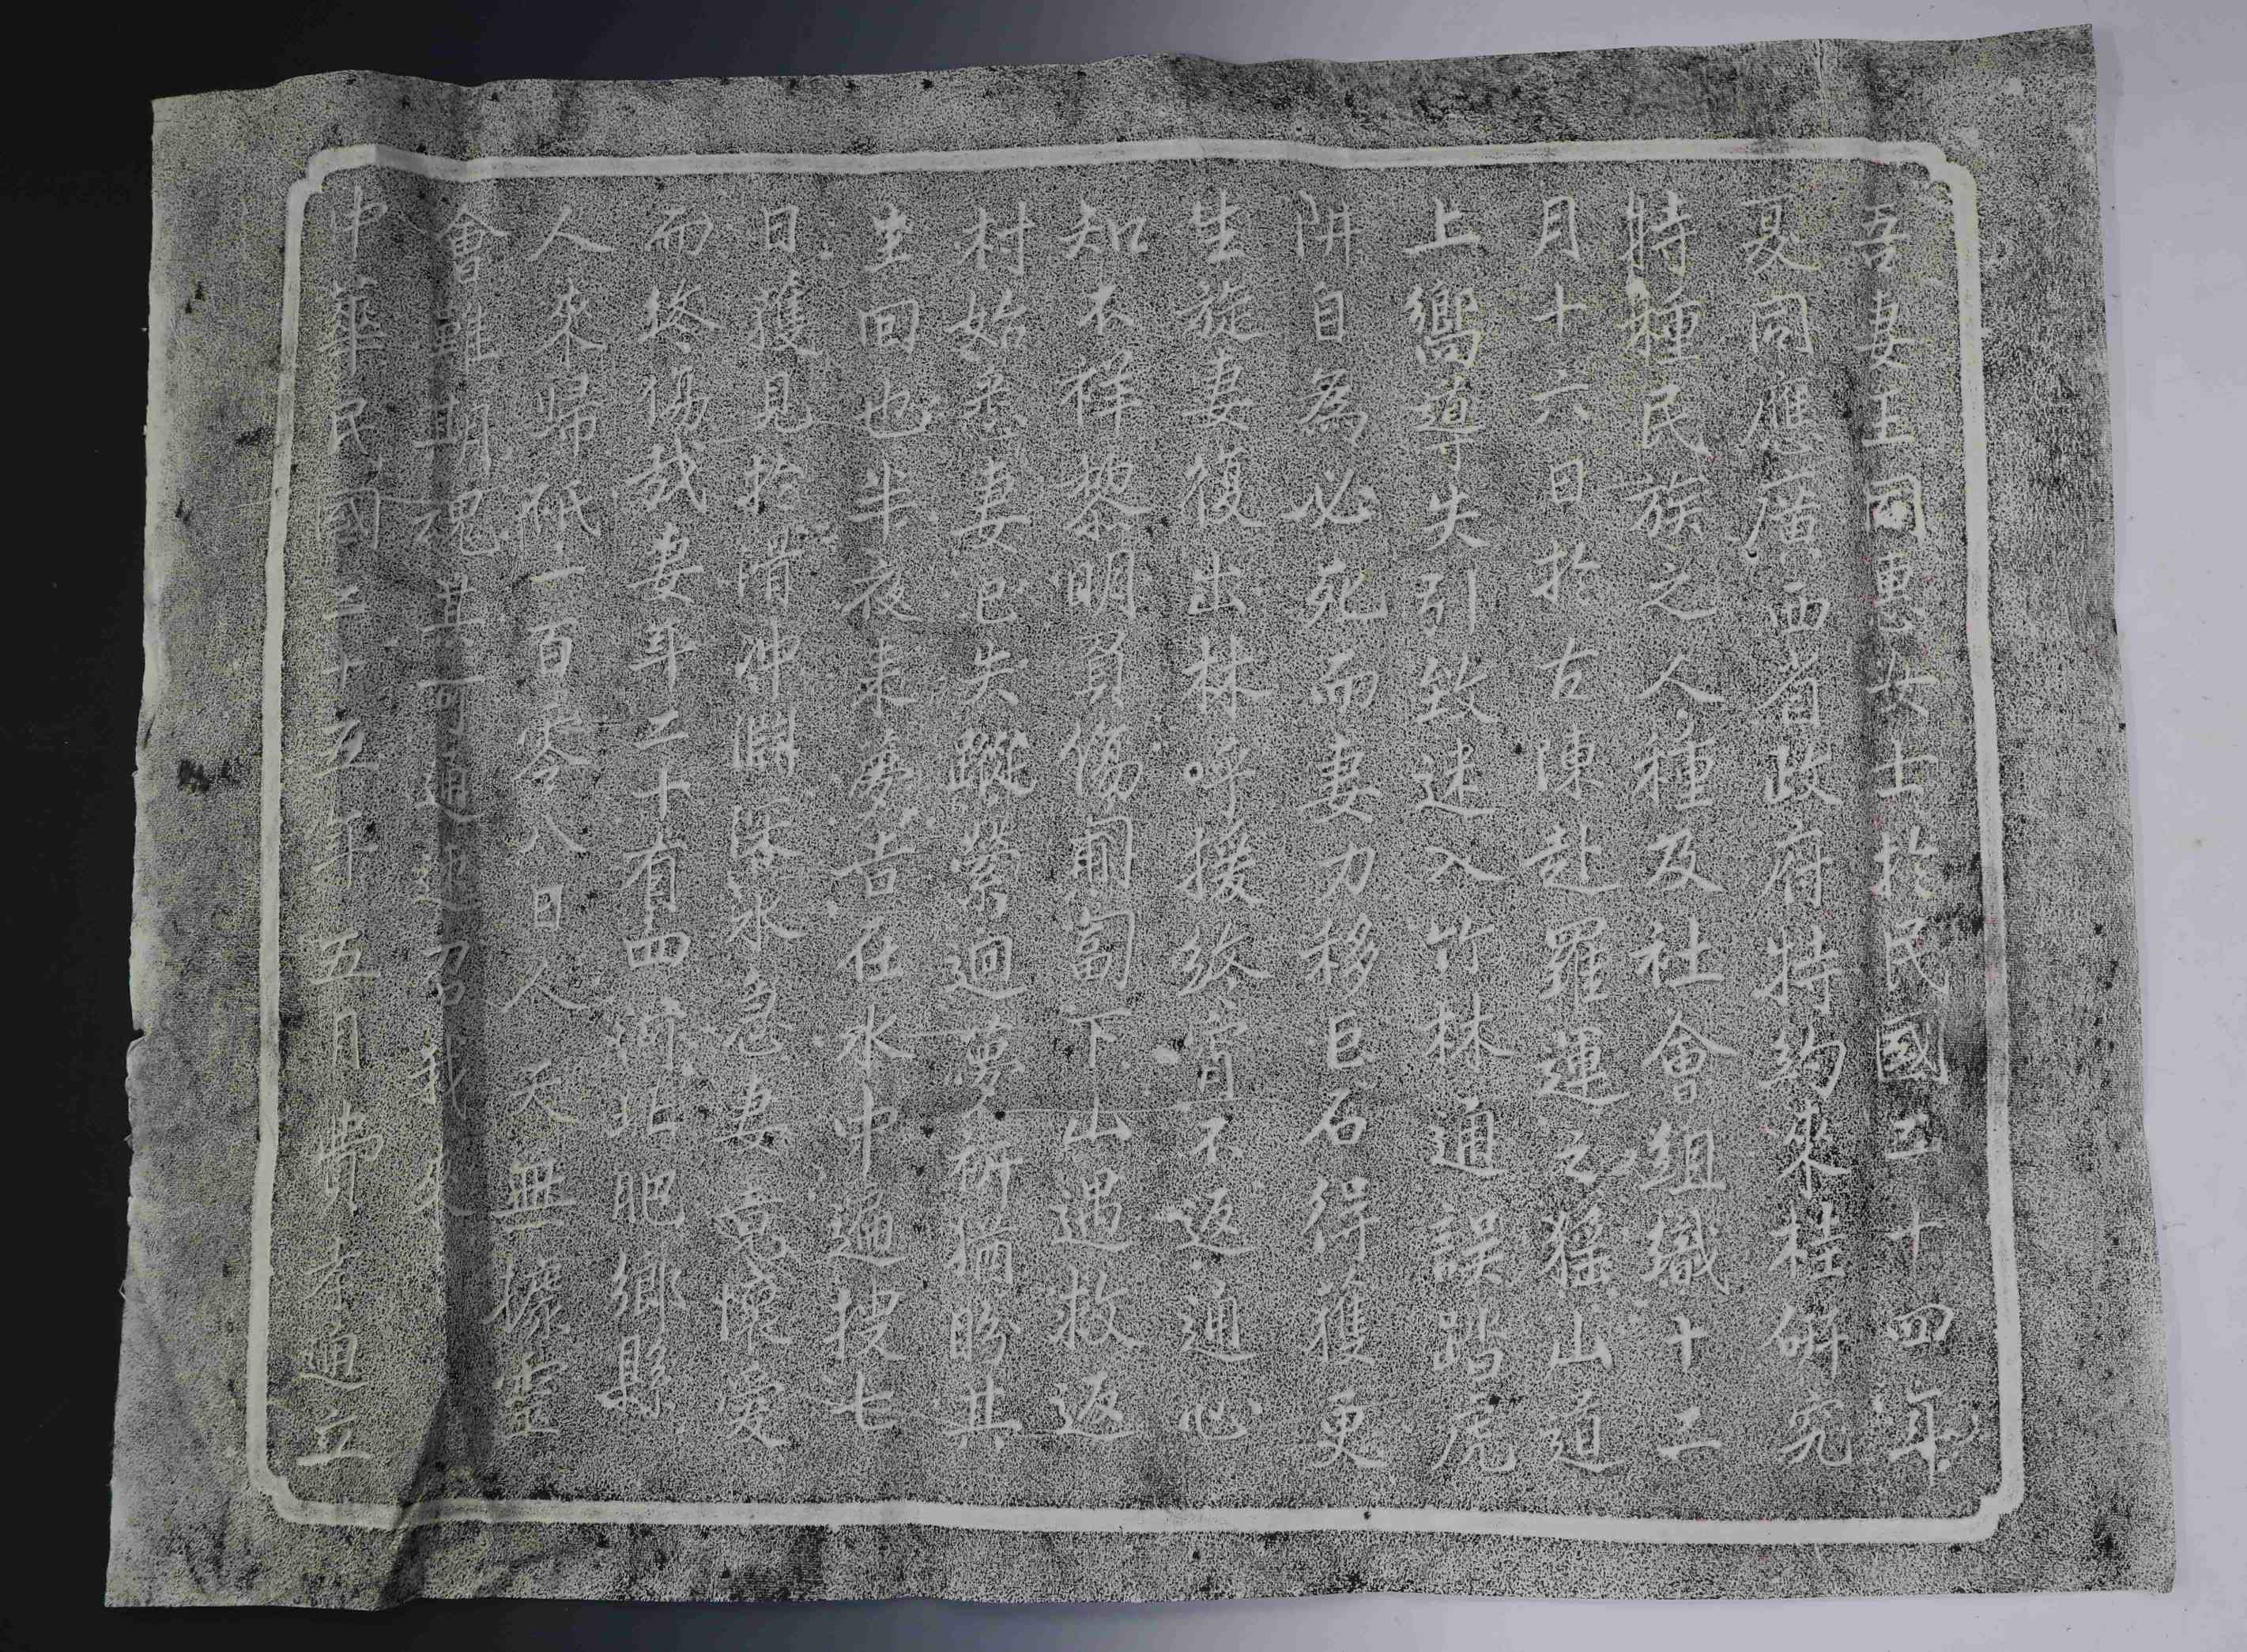 吾妻王同惠女士於民國二十四年
夏同應廣西省政府特約來桂研究
特種民族之人種及社會組織十二
月十六日於古陳赴羅運之猺山道
上嚮導失引致迷入竹林通誤踏虎
阱自為必死而妻力移巨石得獲更
生旋妻復出林呼援終宵不返通心
知不祥黎明負傷匍匐下山遇救返
村始悉妻已失蹤縈迴夢祈猶盼其
生回也半夜来夢告在水中遍搜七
日獲見於滑冲淵深水急妻竟懷愛
而終傷哉妻年二十有四河北肥鄉縣
人來歸祇一百零八日人天無據靈
會難期魂其可通速召我來
中華民國二十五年五月費孝通立